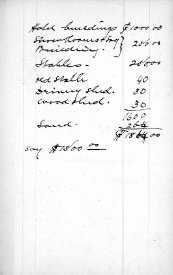 Hotel buildings $1000 00
Storerooms &
Building. } 250 00
Stables. 250 00
old Stable 40
Drivery shed. 30
wood shed. 30
1600
Land. 264
$1864 00
say $1800 00